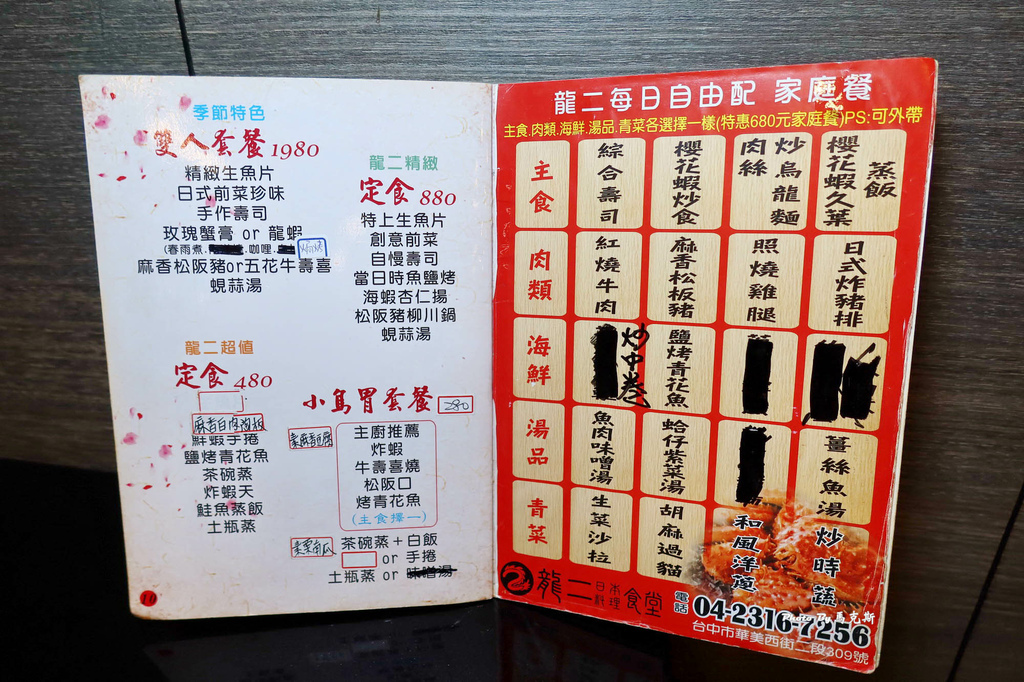 季節特色
雙人套餐 1980
精緻生魚片
日式前菜珍味
手作壽司
玫瑰蟹膏 or 龍蝦
(春雨煮. .咖哩.
麻香松阪豬or五花牛壽喜
蜆蒜湯
龍二精緻
定食 880
特上生魚片
創意前菜
自慢壽司
當日時魚鹽烤
海蝦杏仁揚
松阪豬柳川鍋
蜆蒜湯
龍二超值
定食 480
鮮蝦手捲
鹽烤青花魚
茶碗蒸
炸蝦天
鮭魚蒸飯
土瓶蒸
小鳥胃套餐 280
主廚推薦
炸蝦
牛壽喜燒
松阪口
烤青花魚
(主食擇一)
茶碗蒸+白飯
or 手捲
土瓶蒸 or 味噌湯
龍二每日自由配 家庭餐
主食.肉類.海鮮.湯品.青菜各選擇一樣(特惠680元家庭餐)PS:可外帶
主食
綜合壽司
櫻花蝦炒食
炒烏龍麵
肉絲
蒸飯
櫻花蝦久葉
肉類
紅燒牛肉
麻香松板豬
照燒雞腿
日式炸豬排
海鮮
炒中卷
鹽烤青花魚
湯品
魚肉味噌湯
蛤仔紫菜湯
薑絲魚湯
青菜
生菜沙拉
胡麻過貓
和風洋蔥
炒時蔬
龍二日本料理食堂
電話 04-2316-7256
台中市華美西街二段309號
Photo By 馬克斯